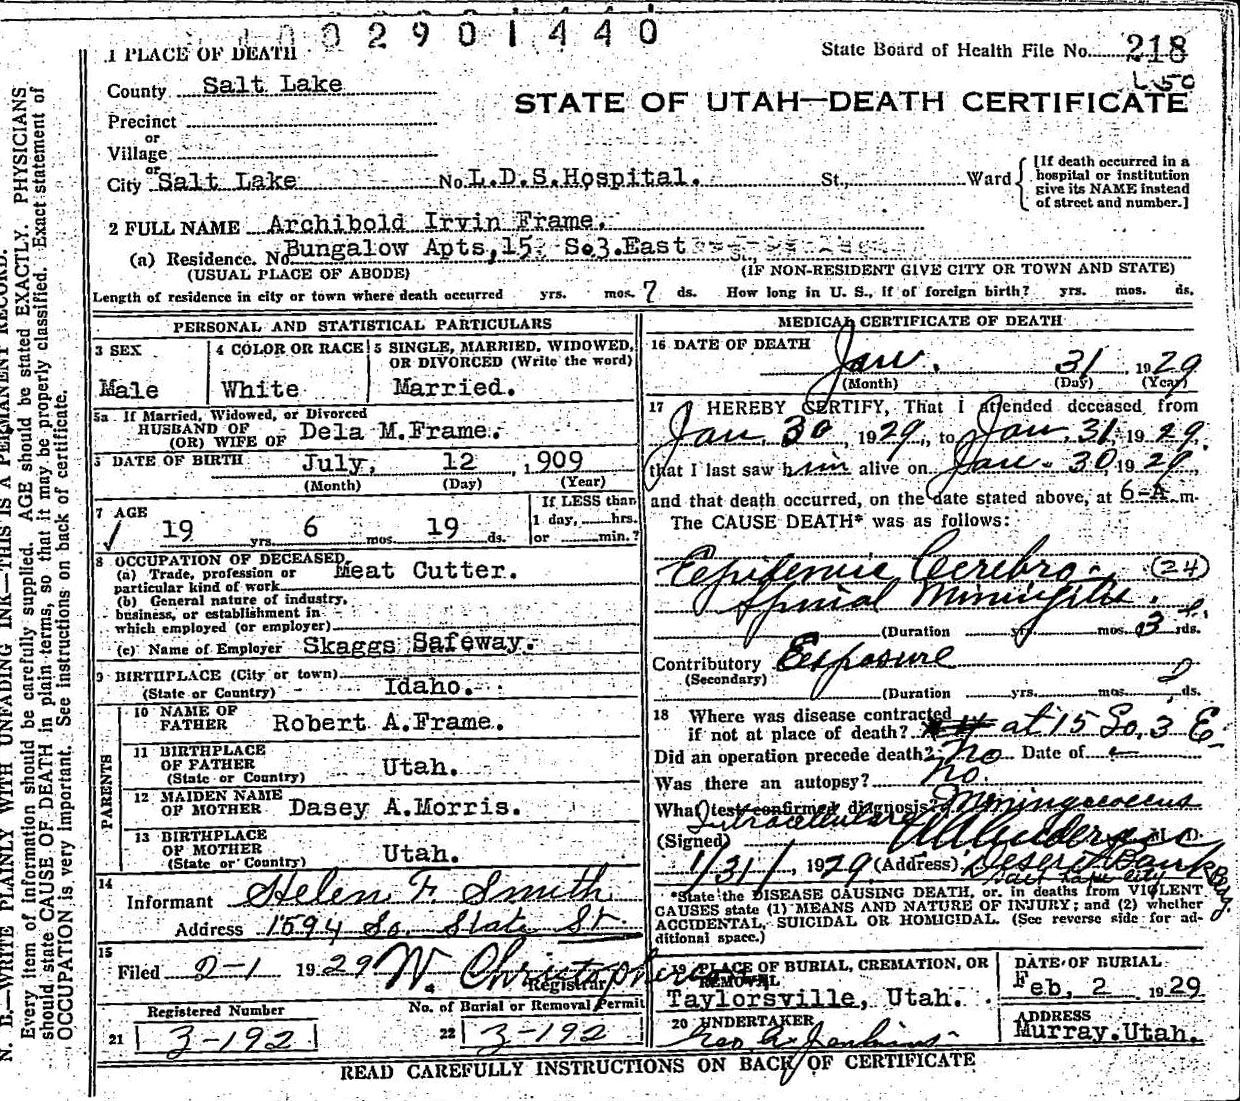 0 0 2 9 0 1 4 4 0
1 PLACE OF DEATH
State Board of Health File No. 218
County Salt Lake
STATE OF UTAH—DEATH CERTIFICATE
Precinct
or
Village
or
City Salt Lake No. L.D.S.Hospital. St., Ward
[If death occurred in a
hospital or institution
give its NAME instead
of street and number.]
2 FULL NAME Archibold Irvin Frame.
(a) Residence. No. Bungalow Apts, 15 So3.East
(USUAL PLACE OF ABODE) (IF NON-RESIDENT GIVE CITY OR TOWN AND STATE)
Length of residence in city or town where death occurred yrs. mos. 7 ds. How long in U. S., if of foreign birth? yrs. mos. ds.
PERSONAL AND STATISTICAL PARTICULARS
3 SEX
Male
4 COLOR OR RACE
White
5 SINGLE, MARRIED, WIDOWED,
OR DIVORCED (Write the word)
Married.
5a If Married, Widowed, or Divorced
HUSBAND OF
(OR) WIFE OF Dela M.Frame.
DATE OF BIRTH July, 12 , 1909
(Month) (Day) (Year)
7 AGE
19 yrs. 6 mos. 19 ds.
If LESS than
1 day, hrs.
or min.?
8 OCCUPATION OF DECEASED
(a) Trade, profession or
particular kind of work Meat Cutter.
(b) General nature of industry,
business, or establishment in
which employed (or employer)
(c) Name of Employer Skaggs Safeway.
9 BIRTHPLACE (City or town)
(State or Country) Idaho.
PARENTS
10 NAME OF
FATHER Robert A.Frame.
11 BIRTHPLACE
OF FATHER
(State or Country) Utah.
12 MAIDEN NAME
OF MOTHER Dasey A.Morris.
13 BIRTHPLACE
OF MOTHER
(State or Country) Utah.
14
Informant Helen F. Smith
Address 1594 So. State St.
15
Filed 2-1 1929 W. Christopherson
Registrar
Registered Number
21 3-192
No. of Burial or Removal Permit
22 3-192
MEDICAL CERTIFICATE OF DEATH
16 DATE OF DEATH
Jan. 31, 1929
(Month) (Day) (Year)
17 I HEREBY CERTIFY, That I attended deceased from
Jan 30, 1929, to Jan. 31, 1929,
that I last saw him alive on Jan. 30 1929,
and that death occurred, on the date stated above, at 6-A m.
The CAUSE DEATH* was as follows:
Epidemic Cerebro- (24)
Spinal Miningitis.
(Duration yrs. mos. 3 ds.
Contributory Exposure
(Secondary)
(Duration yrs. mos. ds.
18 Where was disease contracted
if not at place of death? at 15 So. 3 E.
Did an operation precede death? No Date of
Was there an autopsy? No.
What test confirmed diagnosis? Miningococcus
Intracellular
(Signed) M. D.
1/31/, 1929 (Address) Deseret Bank Bldg.
Salt Lake City
*State the DISEASE CAUSING DEATH, or, in deaths from VIOLENT
CAUSES state (1) MEANS AND NATURE OF INJURY; and (2) whether
ACCIDENTAL, SUICIDAL OR HOMICIDAL. (See reverse side for ad-
ditional space.)
19 PLACE OF BURIAL, CREMATION, OR
REMOVAL
Taylorsville, Utah.
DATE OF BURIAL
Feb, 2 1929
20 UNDERTAKER
Geo A. Jenkins
ADDRESS
Murray.Utah.
READ CAREFULLY INSTRUCTIONS ON BACK OF CERTIFICATE
N. B.—WRITE PLAINLY WITH UNFADING INK—THIS IS A PERMANENT RECORD.
Every item of information should be carefully supplied. AGE should be stated EXACTLY. PHYSICIANS
should state CAUSE OF DEATH in plain terms, so that it may be properly classified. Exact statement of
OCCUPATION is very important. See instructions on back of certificate.